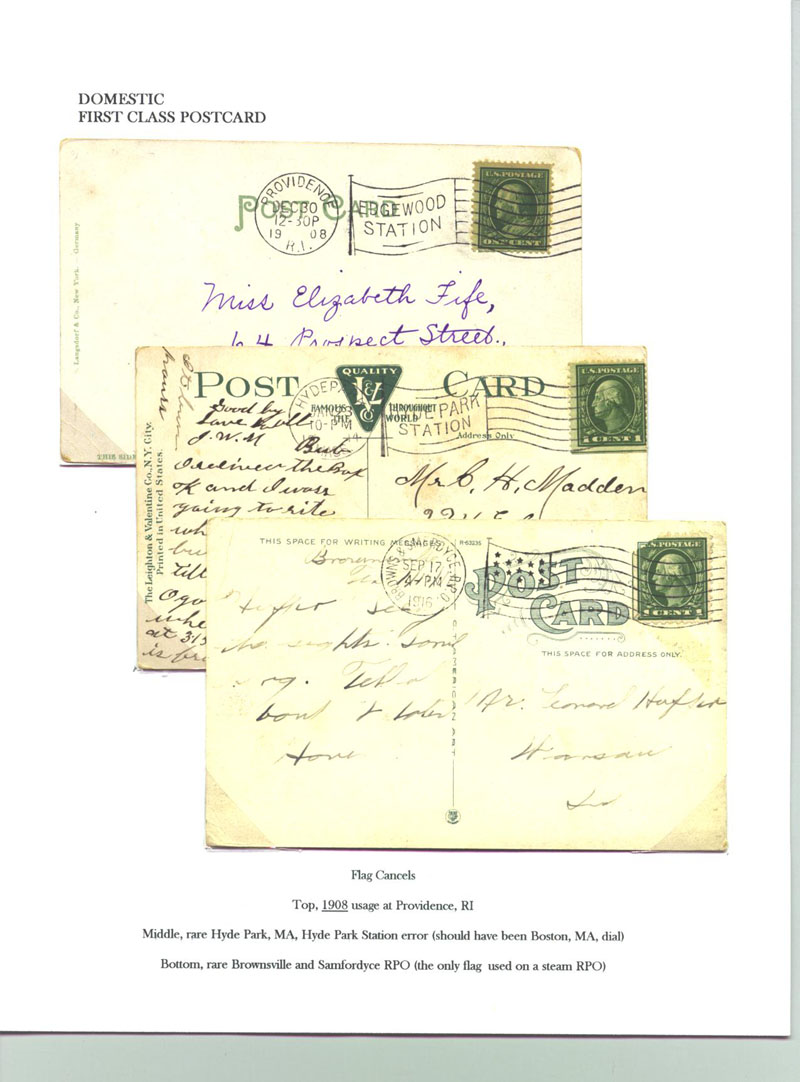 DOMESTIC
FIRST CLASS POSTCARD
POST CARD
PROVIDENCE
DEC 30
12-30P
19 08
R.I.
EDGEWOOD
STATION
U.S. POSTAGE
ONE CENT
Langsdorf & Co., New York. Germany
Miss Elizabeth Fife,
64 Prospect Street.,
THIS SIDE
POST CARD
QUALITY
L&V
Co
FAMOUS THROUGHOUT
THE WORLD
HYDE PARK
10-PM
HYDE PARK
STATION
Address Only
U.S. POSTAGE
1 CENT 1
The Leighton & Valentine Co., N.Y. City.
Printed in United States.
Good by
Love to all
J.W.M
Bub
I received the Box
OK and I was
going to rite
wh
bu
till
whe
at
is
Mr C. H. Madden
THIS SPACE FOR WRITING MESSAGES
R-63235
BROWNS. & SAMFORDYCE R.P.O.
SEP 17
PM
1916
POST
CARD
U.S. POSTAGE
1 CENT 1
THIS SPACE FOR ADDRESS ONLY.
Brown
Mr. Leonard
Warsaw
Flag Cancels
Top, 1908 usage at Providence, RI
Middle, rare Hyde Park, MA, Hyde Park Station error (should have been Boston, MA, dial)
Bottom, rare Brownsville and Samfordyce RPO (the only flag used on a steam RPO)